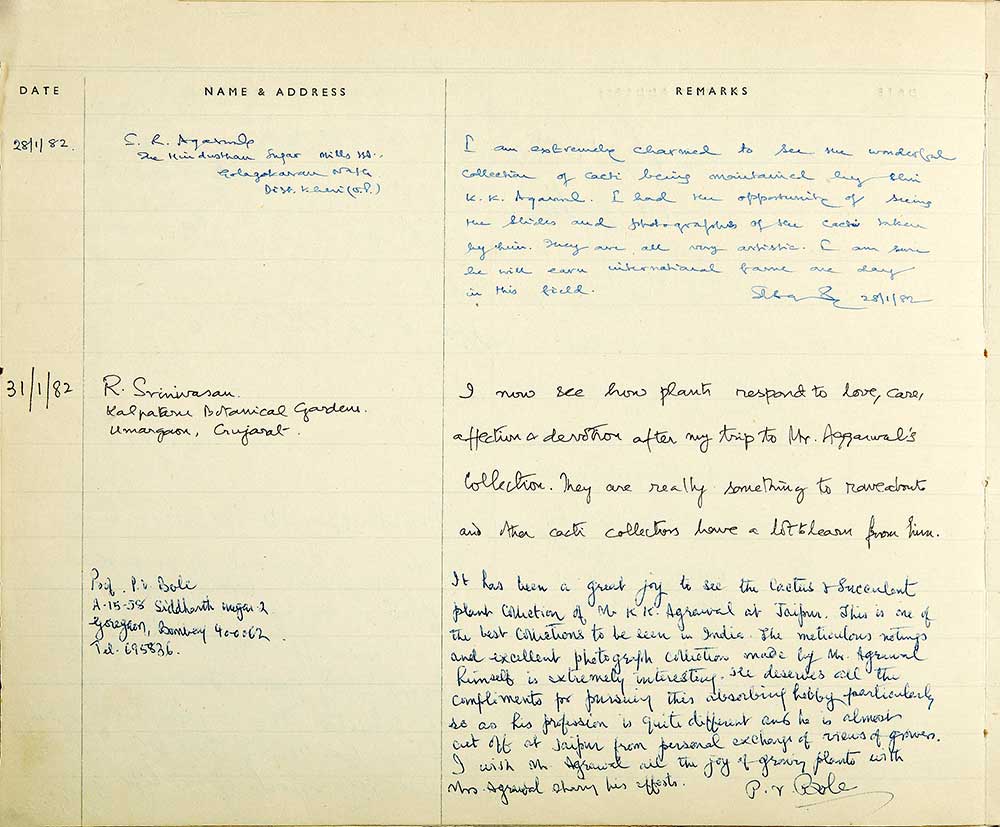 DATE
NAME & ADDRESS
REMARKS
28/1/82.
S. R. Agarwal
The Hindusthan Sugar Mills Ltd.,
Golagokaran Nath
Dist. Kheri (U.P.)
I am extremely charmed to see the wonderful
collection of cacti being maintained by Shri
K. K. Agarwal. I had the opportunity of seeing
the slides and photographs of the cacti taken
by him. They are all very artistic. I am sure
he will earn international fame one day
in this field.
28/1/82
31/1/82
R. Srinivasan.
Kalpataru Botanical Gardens.
Umargaon, Gujarat.
I now see how plants respond to love, care,
affection & devotion after my trip to Mr. Aggarwal's
Collection. They are really something to rave about
and other cacti collectors have a lot to learn from him.
Prof. P. V. Bole
A-15-58 Siddharth nagar 2
Goregaon, Bombay 400062.
Tel. 695836.
It has been a great joy to see the Cactus & Succulent
plant Collection of Mr K K. Agrawal at Jaipur. This is one of
the best Collections to be seen in India. The meticulous notings
and excellent photograph collection made by Mr. Agrawal
himself is extremely interesting. He deserves all the
compliments for pursuing this absorbing hobby particularly
so as his profession is quite different and he is almost
cut off at Jaipur from personal exchange of views of growers.
I wish Mr. Agrawal all the joy of growing plants with
Mrs Agrawal sharing his efforts.
P. V. Bole